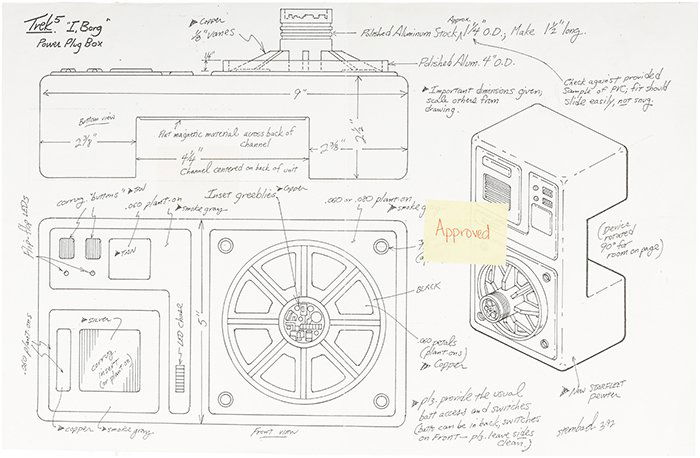 Trek⁵ "I, Borg"
Power Plug Box
Copper
1/8" vanes
Polished Aluminum Stock, Approx. 1 1/4" O.D., Make 1 1/2" long.
1/4"
Polished Alum. 4" O.D.
Check against provided
sample of PVC, fit should
slide easily, not snug.
Important dimensions given;
scale others from
drawing.
9"
Bottom view
Flat magnetic material across back of
channel
2 3/8"
4 1/4"
2 3/8"
2 1/2"
Channel centered on back of unit
corrug. "buttons"
TAN
.060 plant-on
smoke gray
Inset greeblies
Copper
.060 or .080 plant-on
smoke
Approved
TAN
BLACK
(Device
rotated
90° for
room on page)
.060 plant-ons
silver
corrug.
insert
(or plant on)
LED chaser
5"
.060 petals
(plant ons)
Copper
copper
smoke gray
Front view
pls. provide the usual
batt access and switches
(batts can be in back, switches
on front — pls. leave sides
clean.)
New STARFLEET
pewter
sternbach 3/92